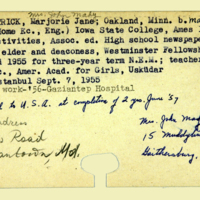 Mrs. John Mady
RICK, Marjorie Jane; Oakland, Minn. b. ma
Home Ec., Eng.) Iowa State College, Ames
tivities, Assoc. ed. High school newspape
elder and deaconess, Westminster Fellowsh
d 1955 for three-year term N.E.M.; teache
c., Amer. Acad. for Girls, Uskudar
stanbul Sept. 7, 1955
work-'56-Gaziantep Hospital
to U.S.A. at completion of 2 yrs. June '57
Mrs. John Mad
Road
15
Gaithersburg,
Md.